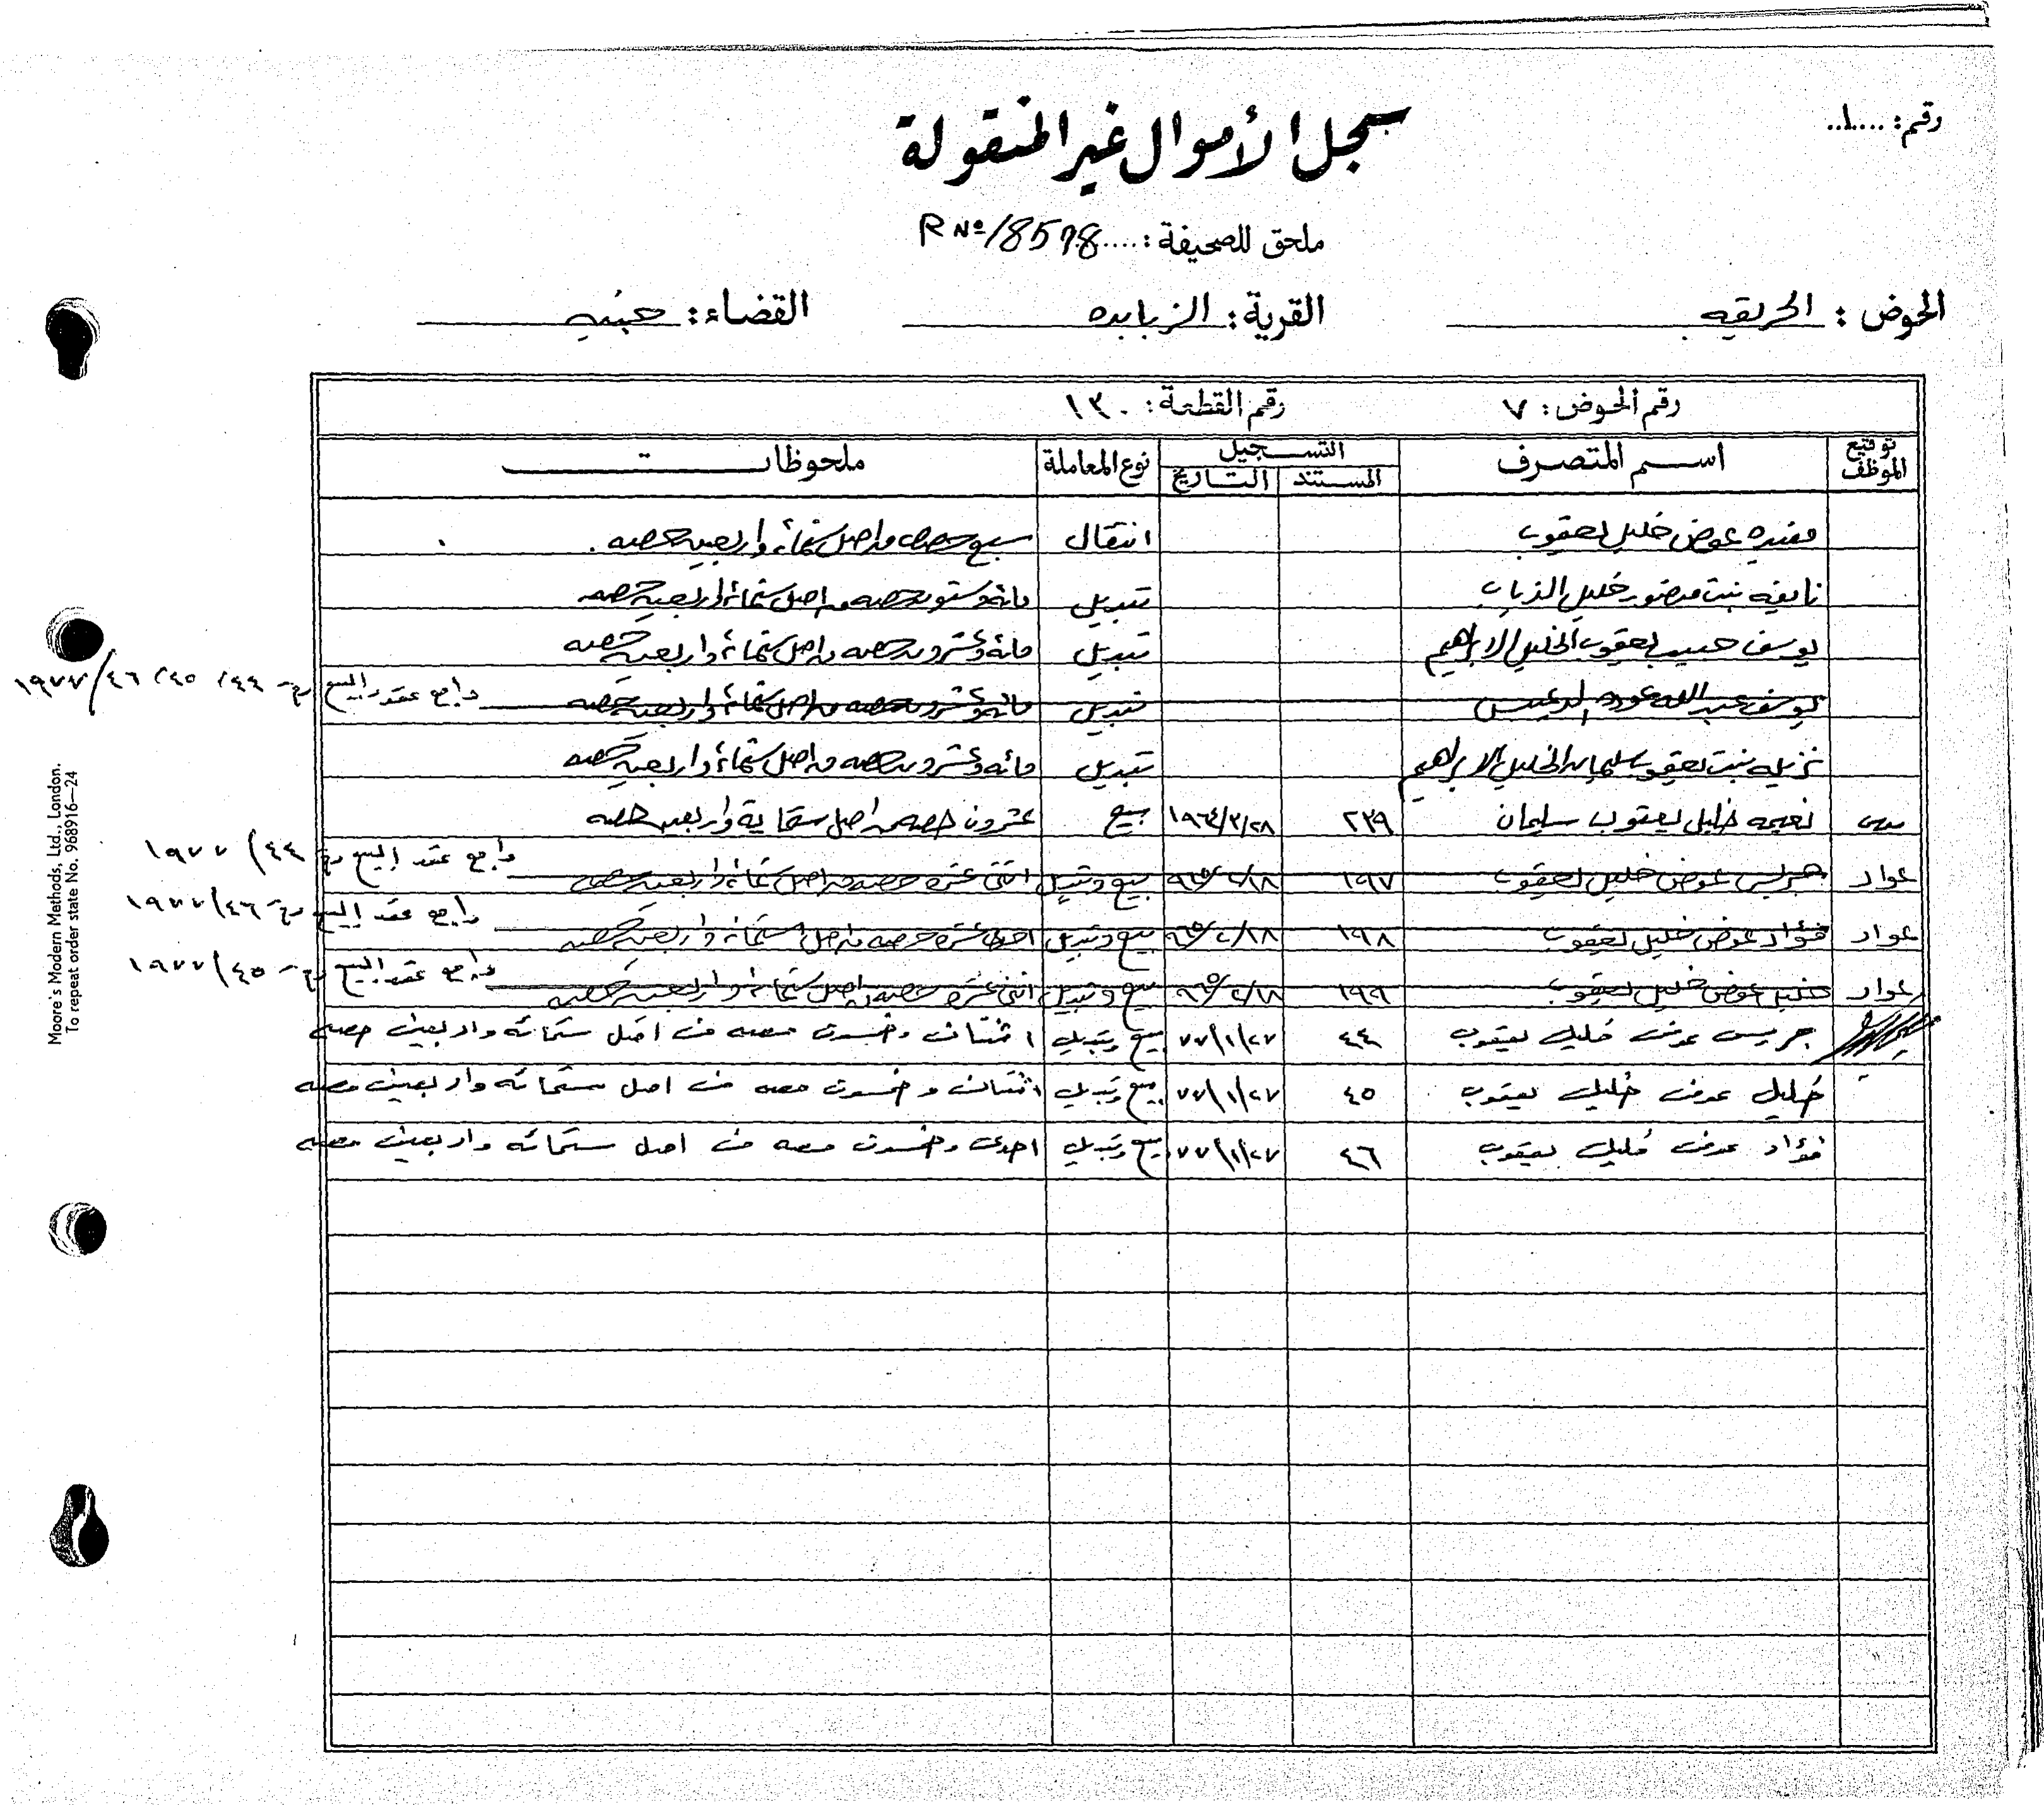 رقم: ....١...
سجل الأموال غير المنقولة
ملحق للصحيفة: .... R Nº/8578
الحوض: الحريقه القرية: الزبابده القضاء: جنين
رقم الحوض: ٧ رقم القطعة: ١٣٠
توقيع الموظف اسم المتصرف التسجيل نوع المعاملة ملحوظات
المستند التاريخ
مفيده عوض خليل يعقوب انتقال سبع حصص من اصل ستمائة واربعين حصه.
نايفه بنت منصور خليل الذياب تبديل مائه وستون حصه من اصل ستمائة واربعين حصه
يوسف حبيب يعقوب الخليل الابراهيم تبديل مائه وعشرون حصه من اصل ستمائة واربعين حصه
يوسف عبدالله عوده تبديل مائه وعشرون حصه من اصل ستمائة واربعين حصه راجع عقد البيع رقم ٤٤، ٤٥، ٤٦/١٩٧٧
نزيله بنت يعقوب سليمان الخليل الابراهيم تبديل مائه وعشرون حصه من اصل ستمائة واربعين حصه
نعيمه خليل يعقوب سليمان ٢٣٩ ١٩٦٤/٣/٢٨ بيع عشرون حصه من اصل ستماية واربعين حصه
عواد جريس عوض خليل يعقوب ١٩٧ ٩٦٥/٢/١٨ بيع وتبديل اثنتي عشره حصه من اصل ستمائة واربعين حصه راجع عقد البيع رقم ٤٤/١٩٧٧
عواد فؤاد عوض خليل يعقوب ١٩٨ ٩٦٥/٢/١٨ بيع وتبديل احدى عشره حصه من اصل ستمائة واربعين حصه راجع عقد البيع رقم ٤٦/١٩٧٧
عواد خليل عوض خليل يعقوب ١٩٩ ٩٦٥/٢/١٨ بيع وتبديل اثنتي عشره حصه من اصل ستمائة واربعين حصه راجع عقد البيع رقم ٤٥/١٩٧٧
جريس عوض خليل يعقوب ٤٤ ٧٧/١/٢٧ بيع وتبديل اثنتان وخمسون حصه من اصل ستمائه واربعين حصه
خليل عوض خليل يعقوب ٤٥ ٧٧/١/٢٧ بيع وتبديل اثنتان وخمسون حصه من اصل ستمائه واربعين حصه
فؤاد عوض خليل يعقوب ٤٦ ٧٧/١/٢٧ بيع وتبديل احدى وخمسون حصه من اصل ستمائه واربعين حصه
Moore's Modern Methods, Ltd., London.
To repeat order state No. 968916—24